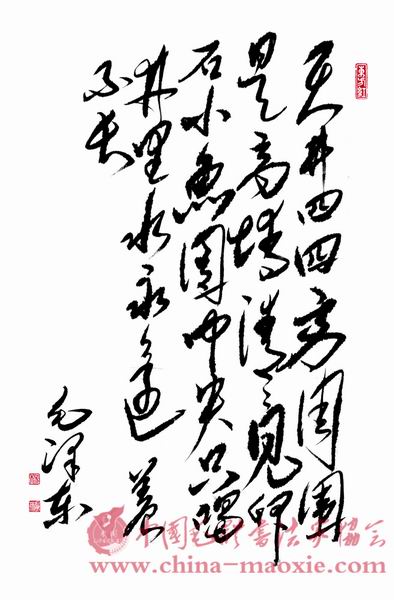 天井四四方周围
是高墙清〻见卵
石小鱼囿中央只喝
井里水永远养
不长
毛泽东
中国毛体书法家协会
www.china-maoxie.com